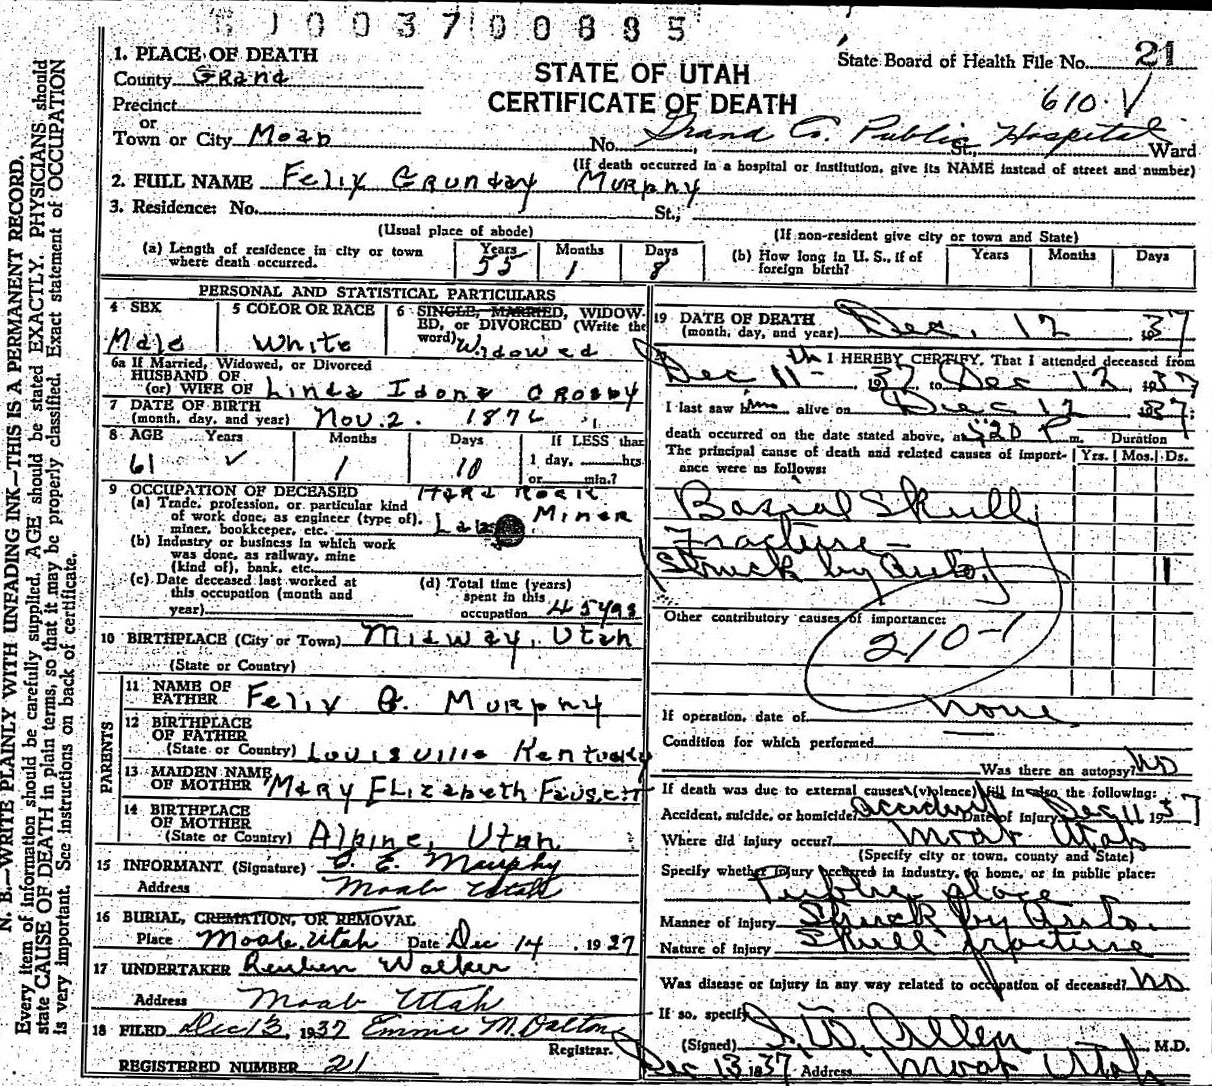 1003700885
1. PLACE OF DEATH
County Grand
Precinct
or
Town or City Moab
STATE OF UTAH
CERTIFICATE OF DEATH
State Board of Health File No. 21
610.
No. Grand Co. Public Hospital St., Ward
(If death occurred in a hospital or institution, give its NAME instead of street and number)
2. FULL NAME Felix Grunday Murphy
3. Residence: No. St.;
(Usual place of abode) (If non-resident give city or town and State)
(a) Length of residence in city or town where death occurred. Years 55 Months 1 Days 8
(b) How long in U. S., if of foreign birth? Years Months Days
PERSONAL AND STATISTICAL PARTICULARS
4 SEX Male
5 COLOR OR RACE White
6 SINGLE, MARRIED, WIDOWED, or DIVORCED (Write the word) Widowed
6a If Married, Widowed, or Divorced
HUSBAND OF
(or) WIFE OF Linda Idona Crosby
7 DATE OF BIRTH
(month, day, and year) Nov. 2.
8 AGE Years 61 Months 1 Days 10
If LESS than
1 day, hrs
or min.?
9 OCCUPATION OF DECEASED Hard Rock
(a) Trade, profession, or particular kind
of work done, as engineer (type of), Miner
miner, bookkeeper, etc.
(b) Industry or business in which work
was done, as railway, mine
(kind of), bank, etc.
(c) Date deceased last worked at
this occupation (month and
year)
(d) Total time (years)
spent in this
occupation 45 yrs
10 BIRTHPLACE (City or Town) Midway, Utah
(State or Country)
PARENTS
11 NAME OF
FATHER Felix G. Murphy
12 BIRTHPLACE
OF FATHER
(State or Country) Louisville Kentucky
13 MAIDEN NAME
OF MOTHER Mary Elizabeth Fausett
14 BIRTHPLACE
OF MOTHER
(State or Country) Alpine, Utah
15 INFORMANT (Signature) E. Murphy
Address Moab Utah
16 BURIAL, CREMATION, OR REMOVAL
Place Moab, Utah Date Dec 14, 1937
17 UNDERTAKER Reuben Walker
Address Moab Utah
18 FILED Dec 13, 1937 Emma M. Dalton
Registrar.
REGISTERED NUMBER 21
19 DATE OF DEATH
(month, day, and year) Dec. 12 1937
I HEREBY CERTIFY, That I attended deceased from
Dec 11th, 1937 to Dec 12, 1937
I last saw him alive on Dec 12 1937;
death occurred on the date stated above, at 520 P m. Duration
The principal cause of death and related causes of importance were as follows: Yrs. Mos. Ds.
Basial Skull
Fracture—
Struck by Auto. 1
Other contributory causes of importance:
210-1
If operation, date of none
Condition for which performed
Was there an autopsy? no
If death was due to external causes (violence) fill in also the following:
Accident, suicide, or homicide? accident Date of injury Dec 11 1937
Where did injury occur? Moab Utah
(Specify city or town, county and State)
Specify whether injury occurred in industry, in home, or in public place:
Public place
Manner of injury Struck by Auto.
Nature of injury Skull fracture
Was disease or injury in any way related to occupation of deceased? no
If so, specify
(Signed) Allen M.D.
Dec 13 1937 Address Moab Utah
N. B.—WRITE PLAINLY WITH UNFADING INK—THIS IS A PERMANENT RECORD.
Every item of information should be carefully supplied. AGE should be stated EXACTLY. PHYSICIANS should
state CAUSE OF DEATH in plain terms, so that it may be properly classified. Exact statement of OCCUPATION
is very important. See instructions on back of certificate.